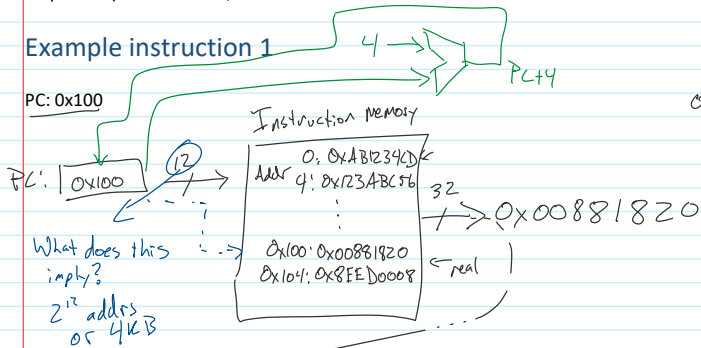 Example instruction 1
4
PC+4
PC: 0x100
Instruction Memory
PC: 0x100
12
Addr
0: 0xAB1234CD
4: 0x123ABC56
32
0x00881820
0x100: 0x00881820
0x104: 0x8EED0008
real
What does this
imply?
2^12 addrs
or 4KB